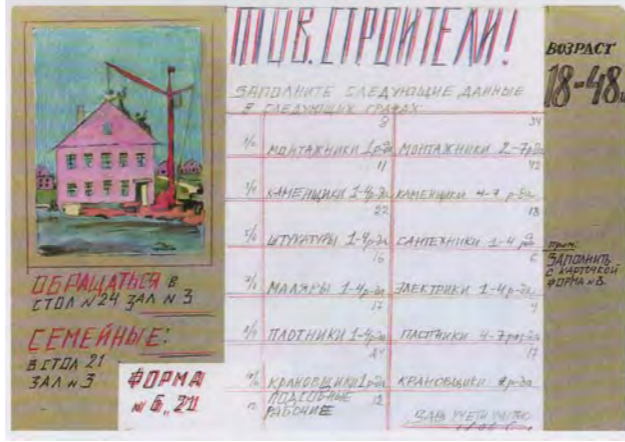 ТОВ. СТРОИТЕЛИ!
ЗАПОЛНИТЕ СЛЕДУЮЩИЕ ДАННЫЕ
В СЛЕДУЮЩИХ ГРАФАХ
8 34
МОНТАЖНИКИ 1 р-да МОНТАЖНИКИ 2-7 р-да
11 42
КАМЕНЩИКИ 1-4 р-да КАМЕНЩИКИ 4-7 р-да
22 18
ШТУКАТУРЫ 1-4 р-да САНТЕХНИКИ 1-4 р-да
16 6
МАЛЯРЫ 1-4 р-да ЭЛЕКТРИКИ 1-4 р-да
17 4
ПЛОТНИКИ 1-4 р-да ПЛОТНИКИ 4-7 раз-да
24 17
КРАНОВЩИКИ 1 р-да КРАНОВЩИКИ р-да
ПОДСОБНЫЕ
РАБОЧИЕ 12
ЗАВ. УЧЕТН
ВОЗРАСТ
18-48
прим:
ЗАПОЛНИТЬ
С КАРТОЧКОЙ
ФОРМА № 8.
ОБРАЩАТЬСЯ В
СТОЛ № 24 ЗАЛ № 3
СЕМЕЙНЫЕ:
В СТОЛ 21
ЗАЛ № 3
ФОРМА
№ 6,, 21